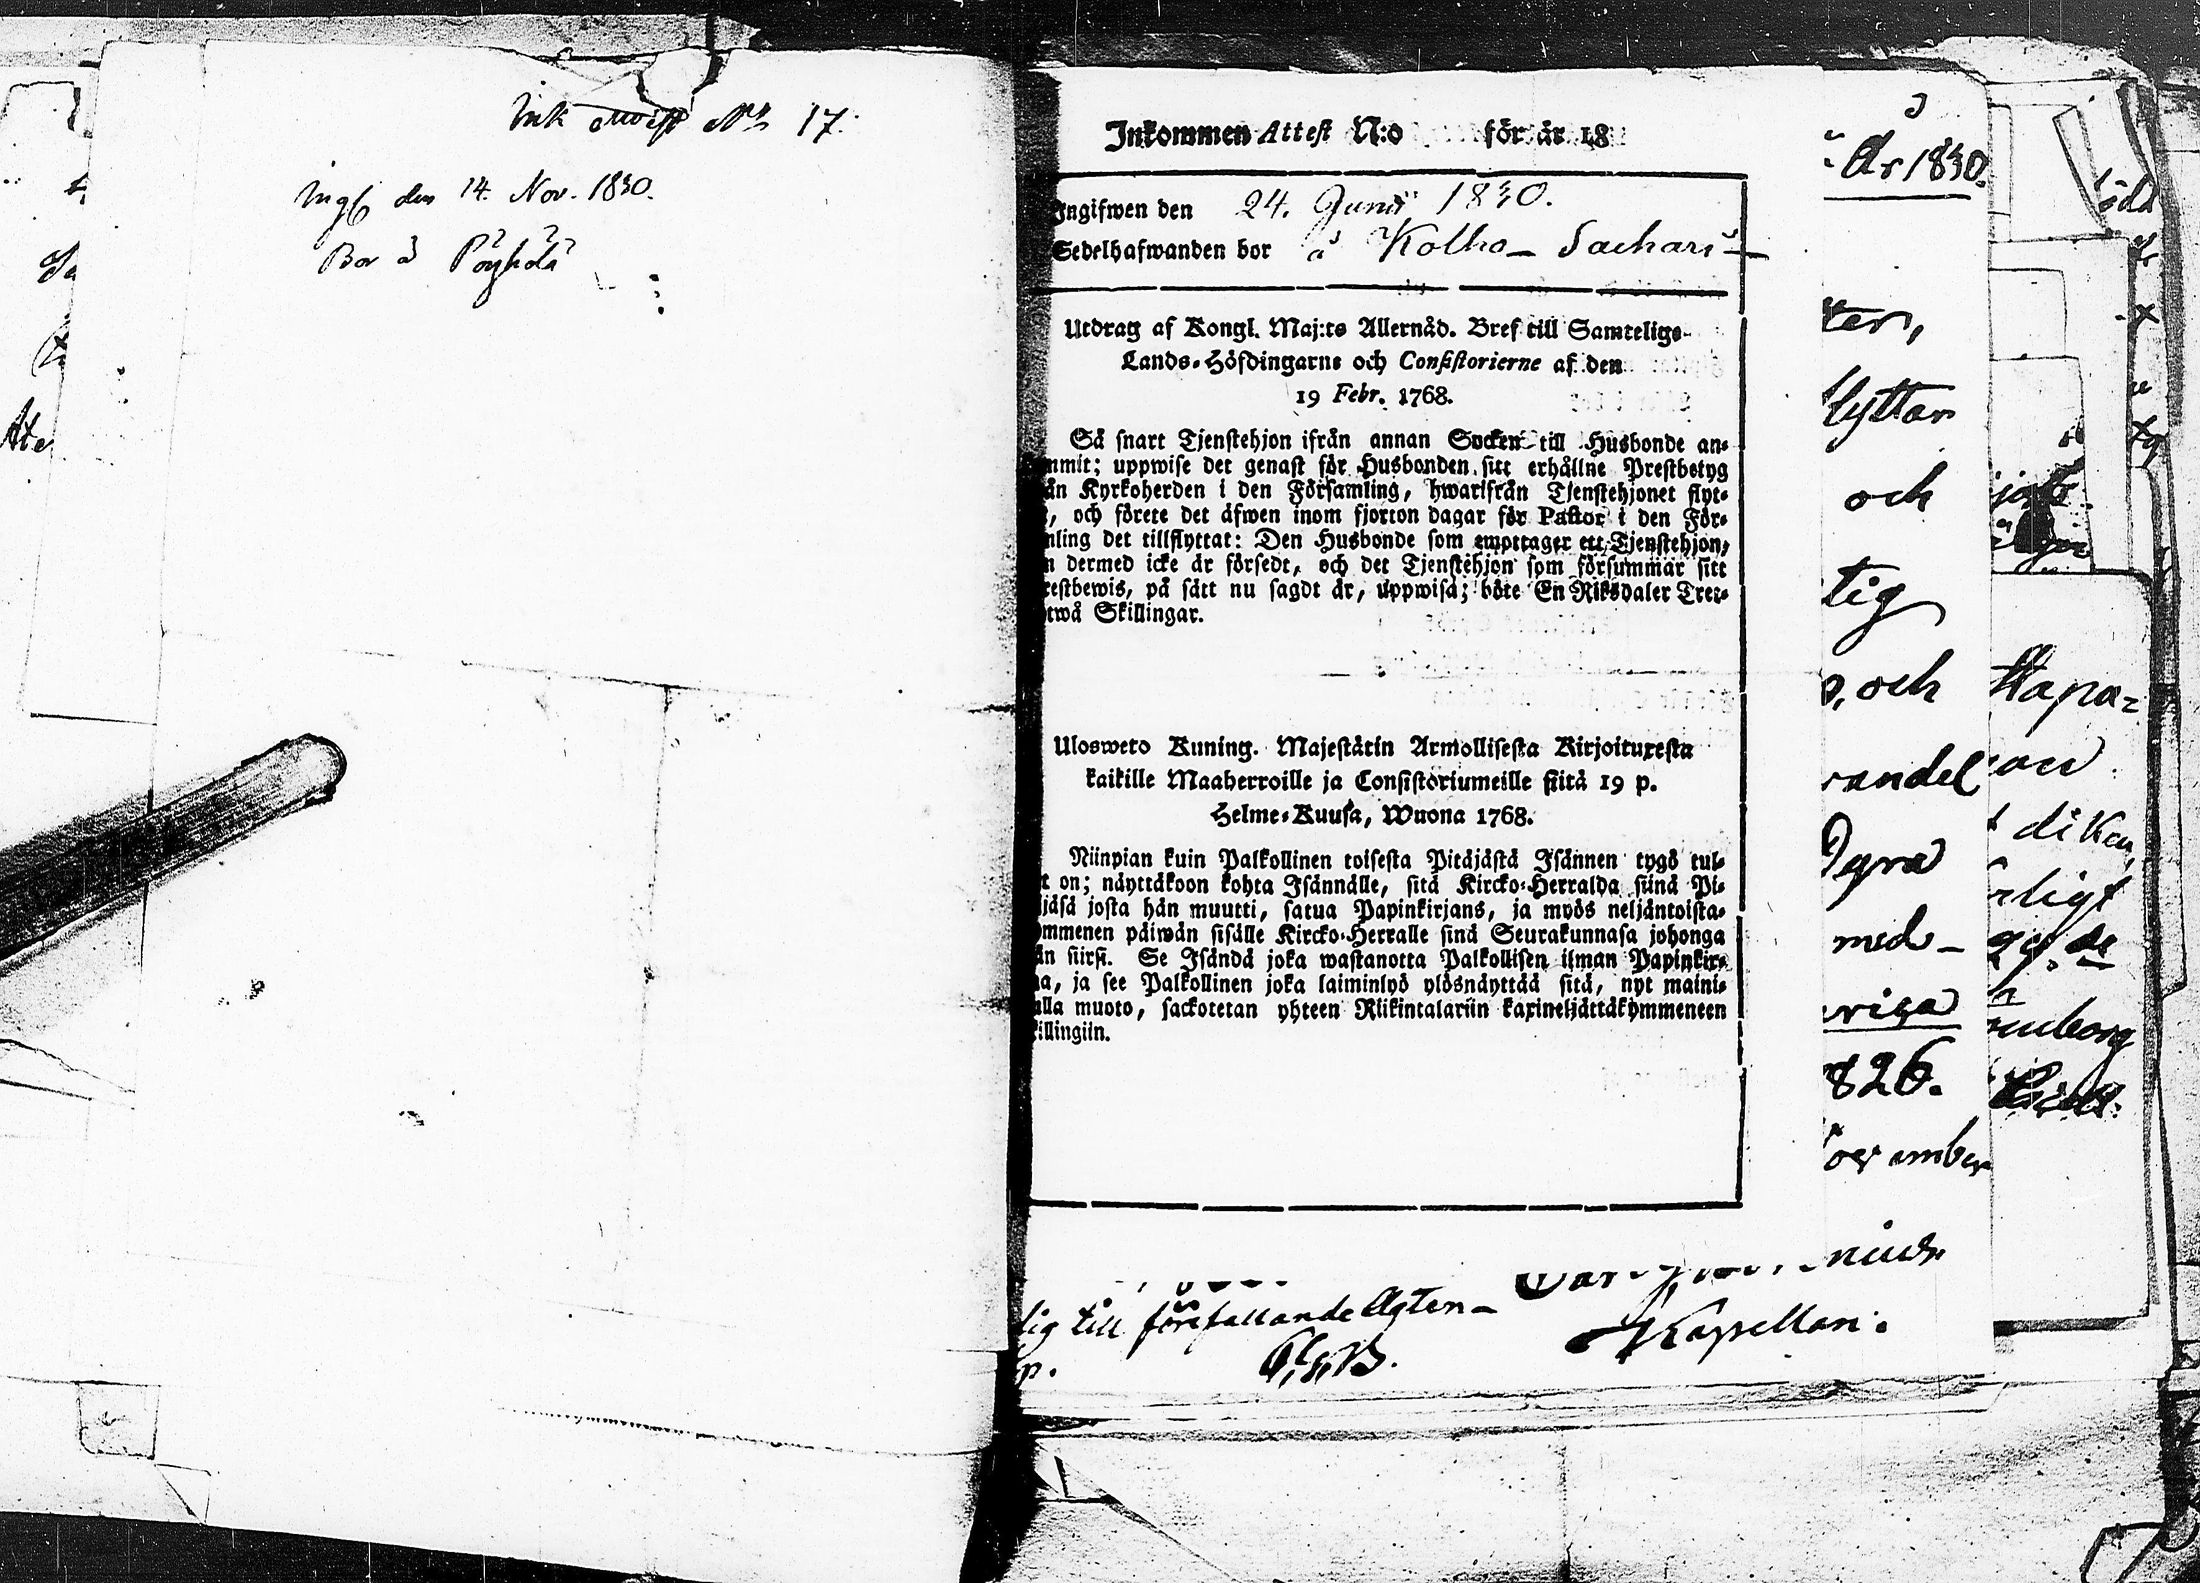 Ink attest No 17.
Ingf den 14. Nov. 1830.
Bor å Pöyhölä
Inkommen Attest N:o för år 18
Ingifwen den 24. Junii 1830.
Sedelhafwanden bor å Kolho-Sachari
Utdrag af Kongl. Maj:ts Allernåd. Bref till Samtelige
Lands-Höfdingarne och Consistorierne af den
19 Febr. 1768.
Så snart Tjenstehjon ifrån annan Socken till Husbonde an-
mmit; uppwise det genast för Husbonden sitt erhållne Prestbetyg
ån Kyrkoherden i den Församling, hwarifrån Tjenstehjonet flyt-
, och förete det äfwen inom fjorton dagar för Pastor i den För-
mling det tillflyttat: Den Husbonde som emottager ett Tjenstehjon,
m dermed icke är försedt, och det Tjenstehjon som försummar sitt
restbewis, på sätt nu sagdt är, uppwisa; böte En Riksdaler Tret-
twå Skillingar.
Ulosweto Kuning. Majestätin Armollisesta Kirjoituxesta
kaikille Maaherroille ja Consistoriumeille siitä 19 p.
Helme-Kuusa, Wuona 1768.
Niinpian kuin Palkollinen toisesta Pitäjästä Isännen tygö tul-
t on; näyttäkoon kohta Isännälle, sitä Kircko-Herralda siinä Pi-
jäsä josta hän muutti, satua Papinkirjans, ja myös neljäntoista-
mmenen päiwän sisälle Kircko-Herralle sinä Seurakunnasa johonga
än siirsi. Se Isändä joka wastanotta Palkollisen ilman Papinkir-
a, ja see Palkollinen joka laiminlyö ylösnäyttää sitä, nyt maini-
ulla muoto, sackotetan yhteen Rlikintalariin kaxineljättäkymmeneen
killingiin.
År 1830.
ter,
lyttar
och
tig
, och
randel
Ogra
med-
riga
1826.
ovember
lig till förefallande Agten-
p.
Kapellan.
ttapa-
on
diken,
rligt
nuborg